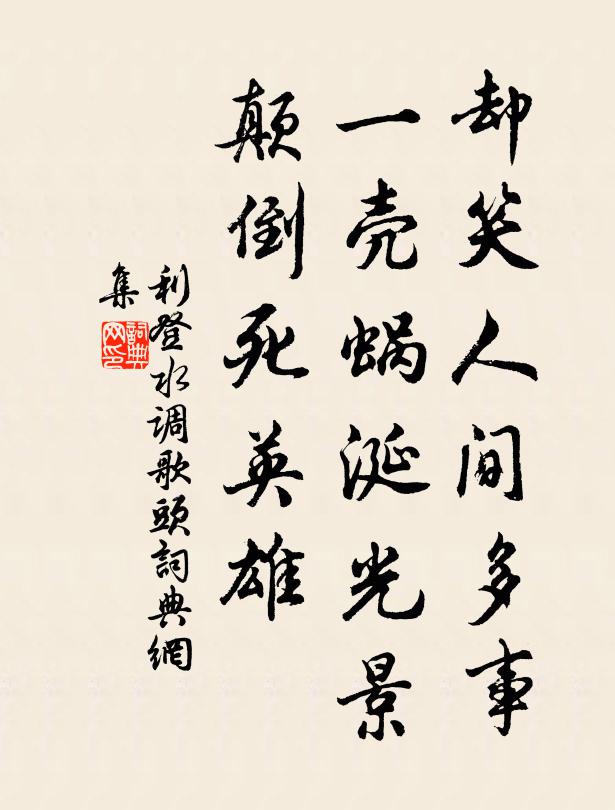 却笑人间多事
一壳蜗涎光景
颠倒死英雄
利登水调歌头詞典網
集
詞典
网印